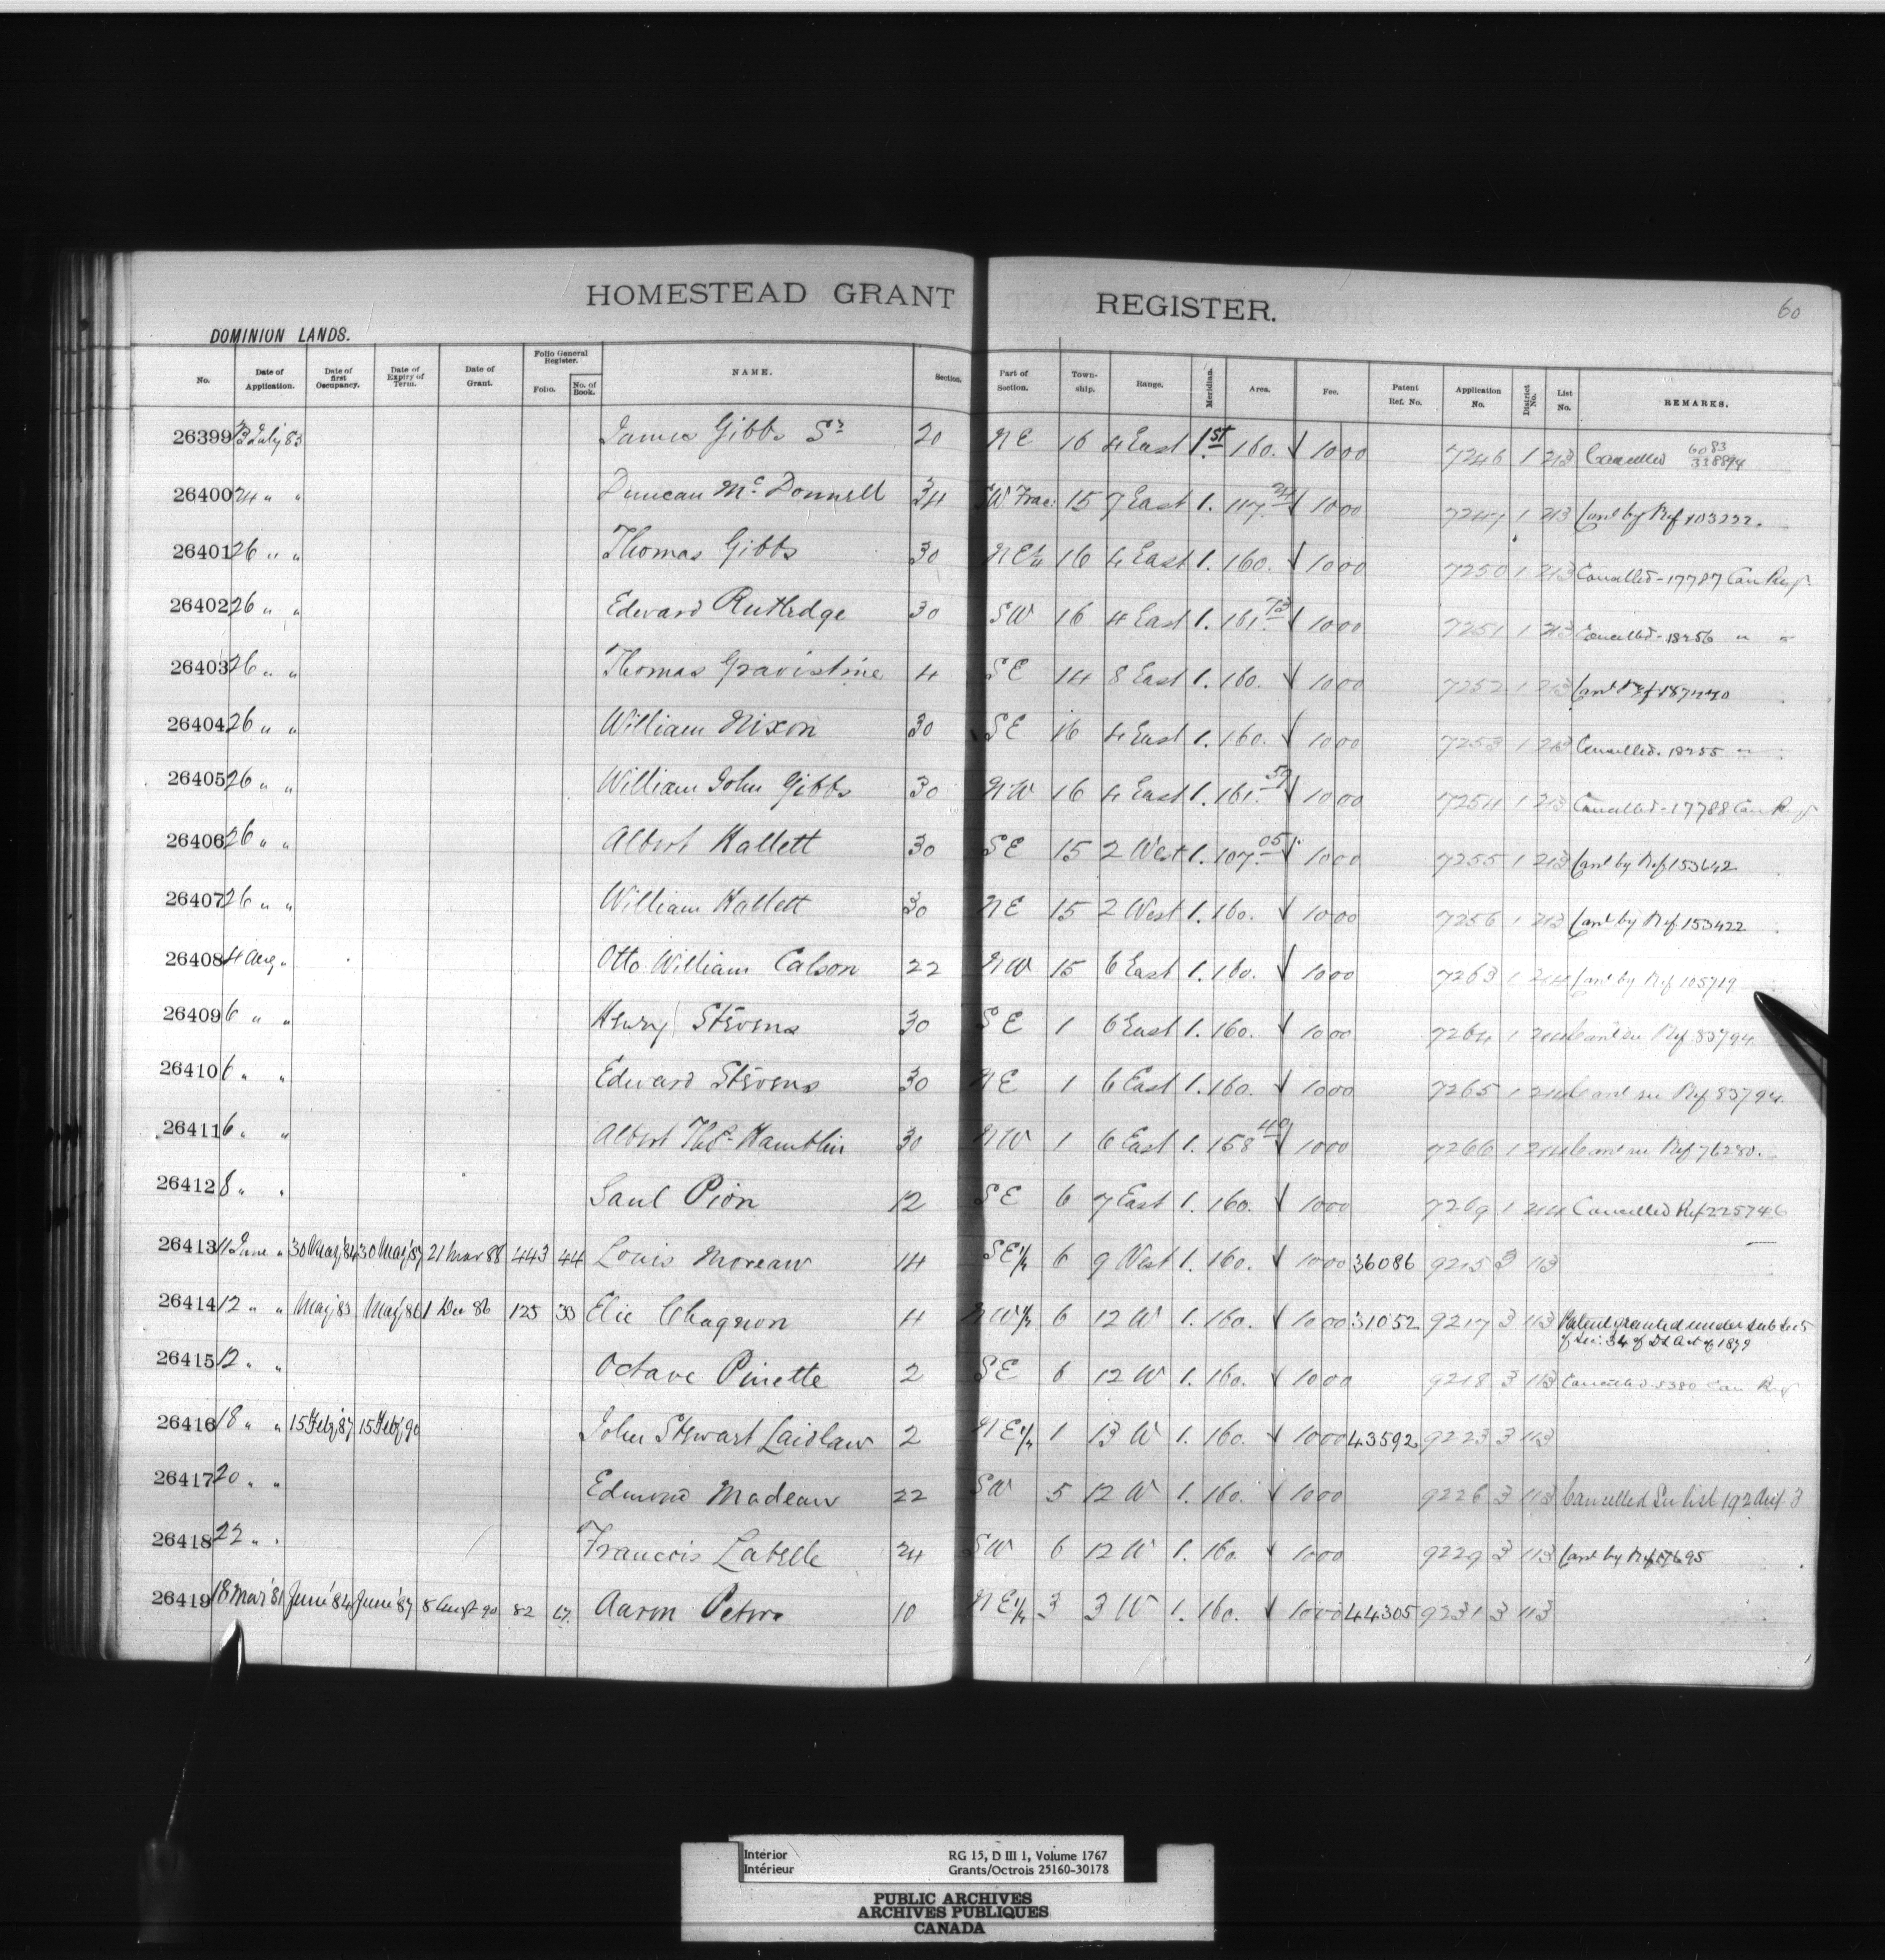 HOMESTEAD GRANT REGISTER.
60
DOMINION LANDS.
No. Date of Application. Date of first Occupancy. Date of Expiry of Term. Date of Grant. Folio General Register. Folio. No. of Book. NAME. Section. Part of Section. Township. Range. Meridian. Area. Fee. Patent Ref. No. Application No. District No. List No. REMARKS.
26399 July 83 James Gibbs Sr 20 NE 16 4 East 1st 160. 10 00 7246 1 213 Cancelled
26400 24 " " Duncan Mc Donnell 34 SW Frac: 15 7 East 1. 117. 10 00 7247 1 213 Canl by Ref 103222.
26401 26 " " Thomas Gibbs 30 NE¼ 16 4 East 1. 160. 10 00 7250 1 213 Cancelled - 17787 Can Reg.
26402 26 " " Edward Rutledge 30 SW 16 4 East 1. 161.73 10 00 7251 1 213 Cancelled - 18256 " "
26403 26 " " Thomas 4 SE 14 8 East 1. 160. 10 00 7252 1 213 Canl Ref 187440
26404 26 " " William Nixon 30 SE 16 4 East 1. 160. 10 00 7253 1 213 Cancelled. 18255 "
26405 26 " " William John Gibbs 30 NW 16 4 East 1. 161.59 10 00 7254 1 213 Cancelled - 17788 Can Reg
26406 26 " " Albert Hallett 30 SE 15 2 West 1. 107.05 10 00 7255 1 213 Canl by Ref 153642
26407 26 " " William Hallett 30 NE 15 2 West 1. 160. 10 00 7256 1 213 Canl by Ref 153422
26408 4 Aug. " Otto William Calson 22 NW 15 6 East 1. 160. 10 00 7263 1 214 Canl by Ref 105719
26409 6 " " Henry Stevens 30 SE 1 6 East 1. 160. 10 00 7264 1 214 Canl see Ref 83794.
26410 6 " " Edward Stevens 30 NE 1 6 East 1. 160. 10 00 7265 1 214 Canl see Ref 83794.
26411 6 " " Albert Thos. Hamblin 30 NW 1 6 East 1. 158.40 10 00 7266 1 214 Canl see Ref 76280.
26412 8 " " Saul Pion 12 SE 6 7 East 1. 160. 10 00 7269 1 214 Cancelled Ref 225746
26413 11 June " 30 May '84 30 May '87 21 Mar 88 443 44 Louis Moreau 14 SE¼ 6 9 West 1. 160. 10 00 36086 9215 3 113
26414 12 " " May '83 May '86 1 Dec 86 125 33 Elie Chagnon 4 NW¼ 6 12 W 1. 160. 10 00 31052 9217 3 113 Patent granted under Sub Sec 5
of Sec. 34 of D L Act of 1879
26415 12 " " Octave Pinette 2 SE 6 12 W 1. 160. 10 00 9218 3 113 Cancelled 5380 Can Reg
26416 18 " " 15 Feby '87 15 Feby '90 John Stewart Laidlaw 2 NE¼ 1 13 W 1. 160. 10 00 43592 9223 3 113
26417 20 " " Edmond Nadeau 22 SW 5 12 W 1. 160. 10 00 9226 3 113 Cancelled See List 192 Dist 3
26418 22 " " Francois Labelle 24 SW 6 12 W 1. 160 10 00 9229 3 113 Canl by Ref
26419 18 Mar '81 June '84 June '87 8 Augt 90 82 67. Aaron Peters 10 NE¼ 3 3 W 1. 160. 10 00 44305 9231 3 113
Interior
Intérieur
RG 15, D III 1, Volume 1767
Grants/Octrois 25160-30178
PUBLIC ARCHIVES
ARCHIVES PUBLIQUES
CANADA